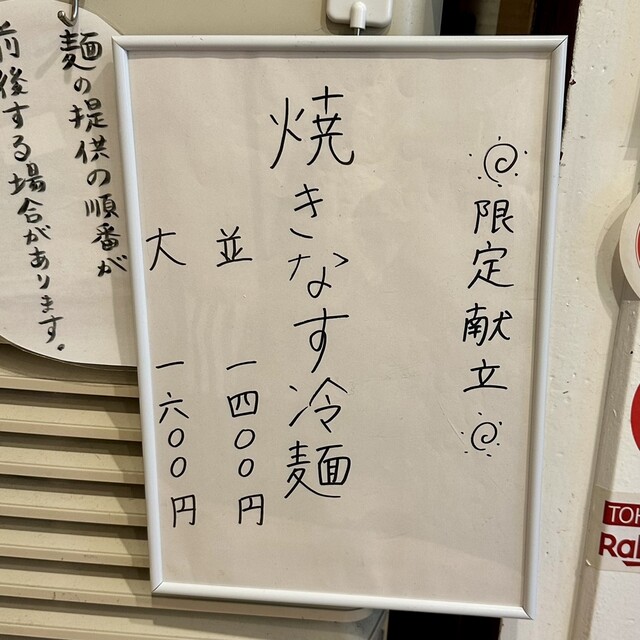 限定献立
焼きなす冷麺
並 一四〇〇円
大 一六〇〇円
麺の提供の順番が
前後する場合があります。
TOH
Ra